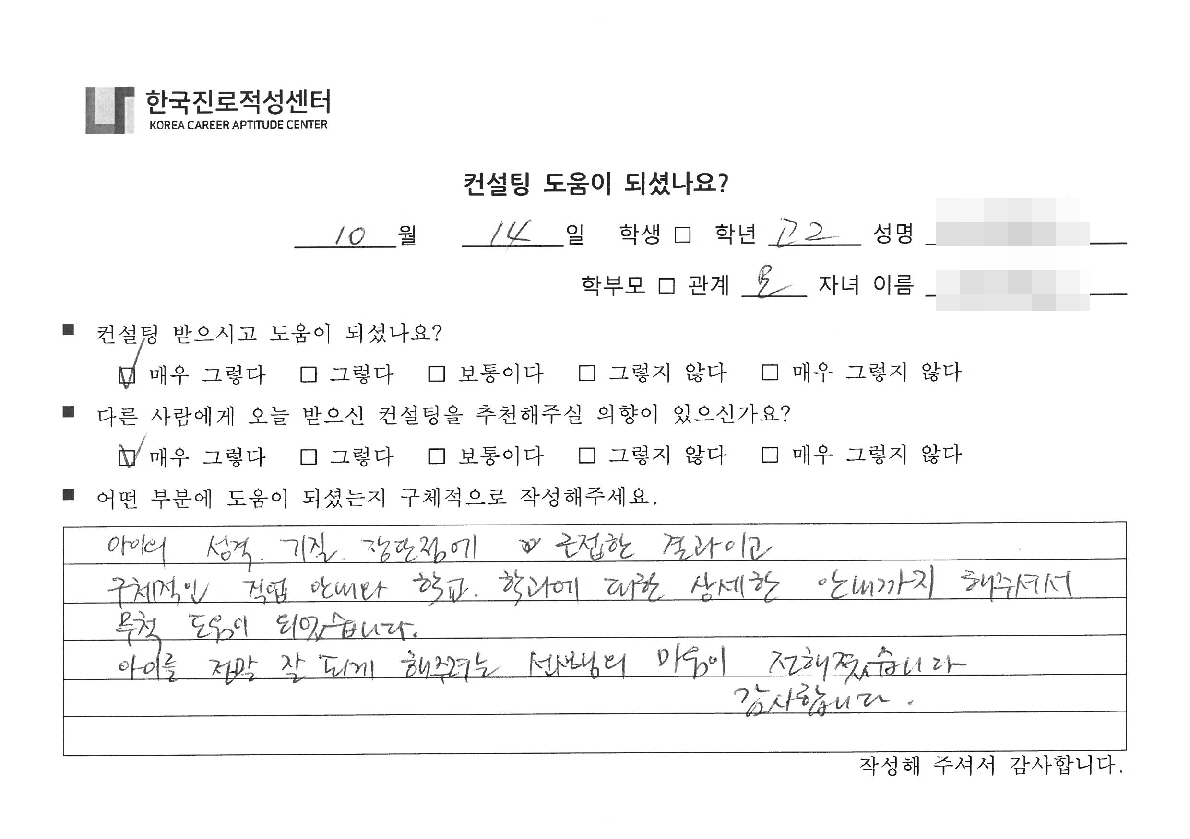 한국진로적성센터
KOREA CAREER APTITUDE CENTER
컨설팅 도움이 되셨나요?
10 월 14 일 학생 □ 학년 고2 성명
학부모 □ 관계 모 자녀 이름
■ 컨설팅 받으시고 도움이 되셨나요?
☑ 매우 그렇다 □ 그렇다 □ 보통이다 □ 그렇지 않다 □ 매우 그렇지 않다
■ 다른 사람에게 오늘 받으신 컨설팅을 추천해주실 의향이 있으신가요?
☑ 매우 그렇다 □ 그렇다 □ 보통이다 □ 그렇지 않다 □ 매우 그렇지 않다
■ 어떤 부분에 도움이 되셨는지 구체적으로 작성해주세요.
아이의 성격. 기질. 장단점에 근접한 결과이고
구체적인 직업 안내와 학교. 학과에 대한 상세한 안내까지 해주셔서
무척 도움이 되었습니다.
아이를 정말 잘 되게 해주려는 선생님의 마음이 전해졌습니다
감사합니다.
작성해 주셔서 감사합니다.